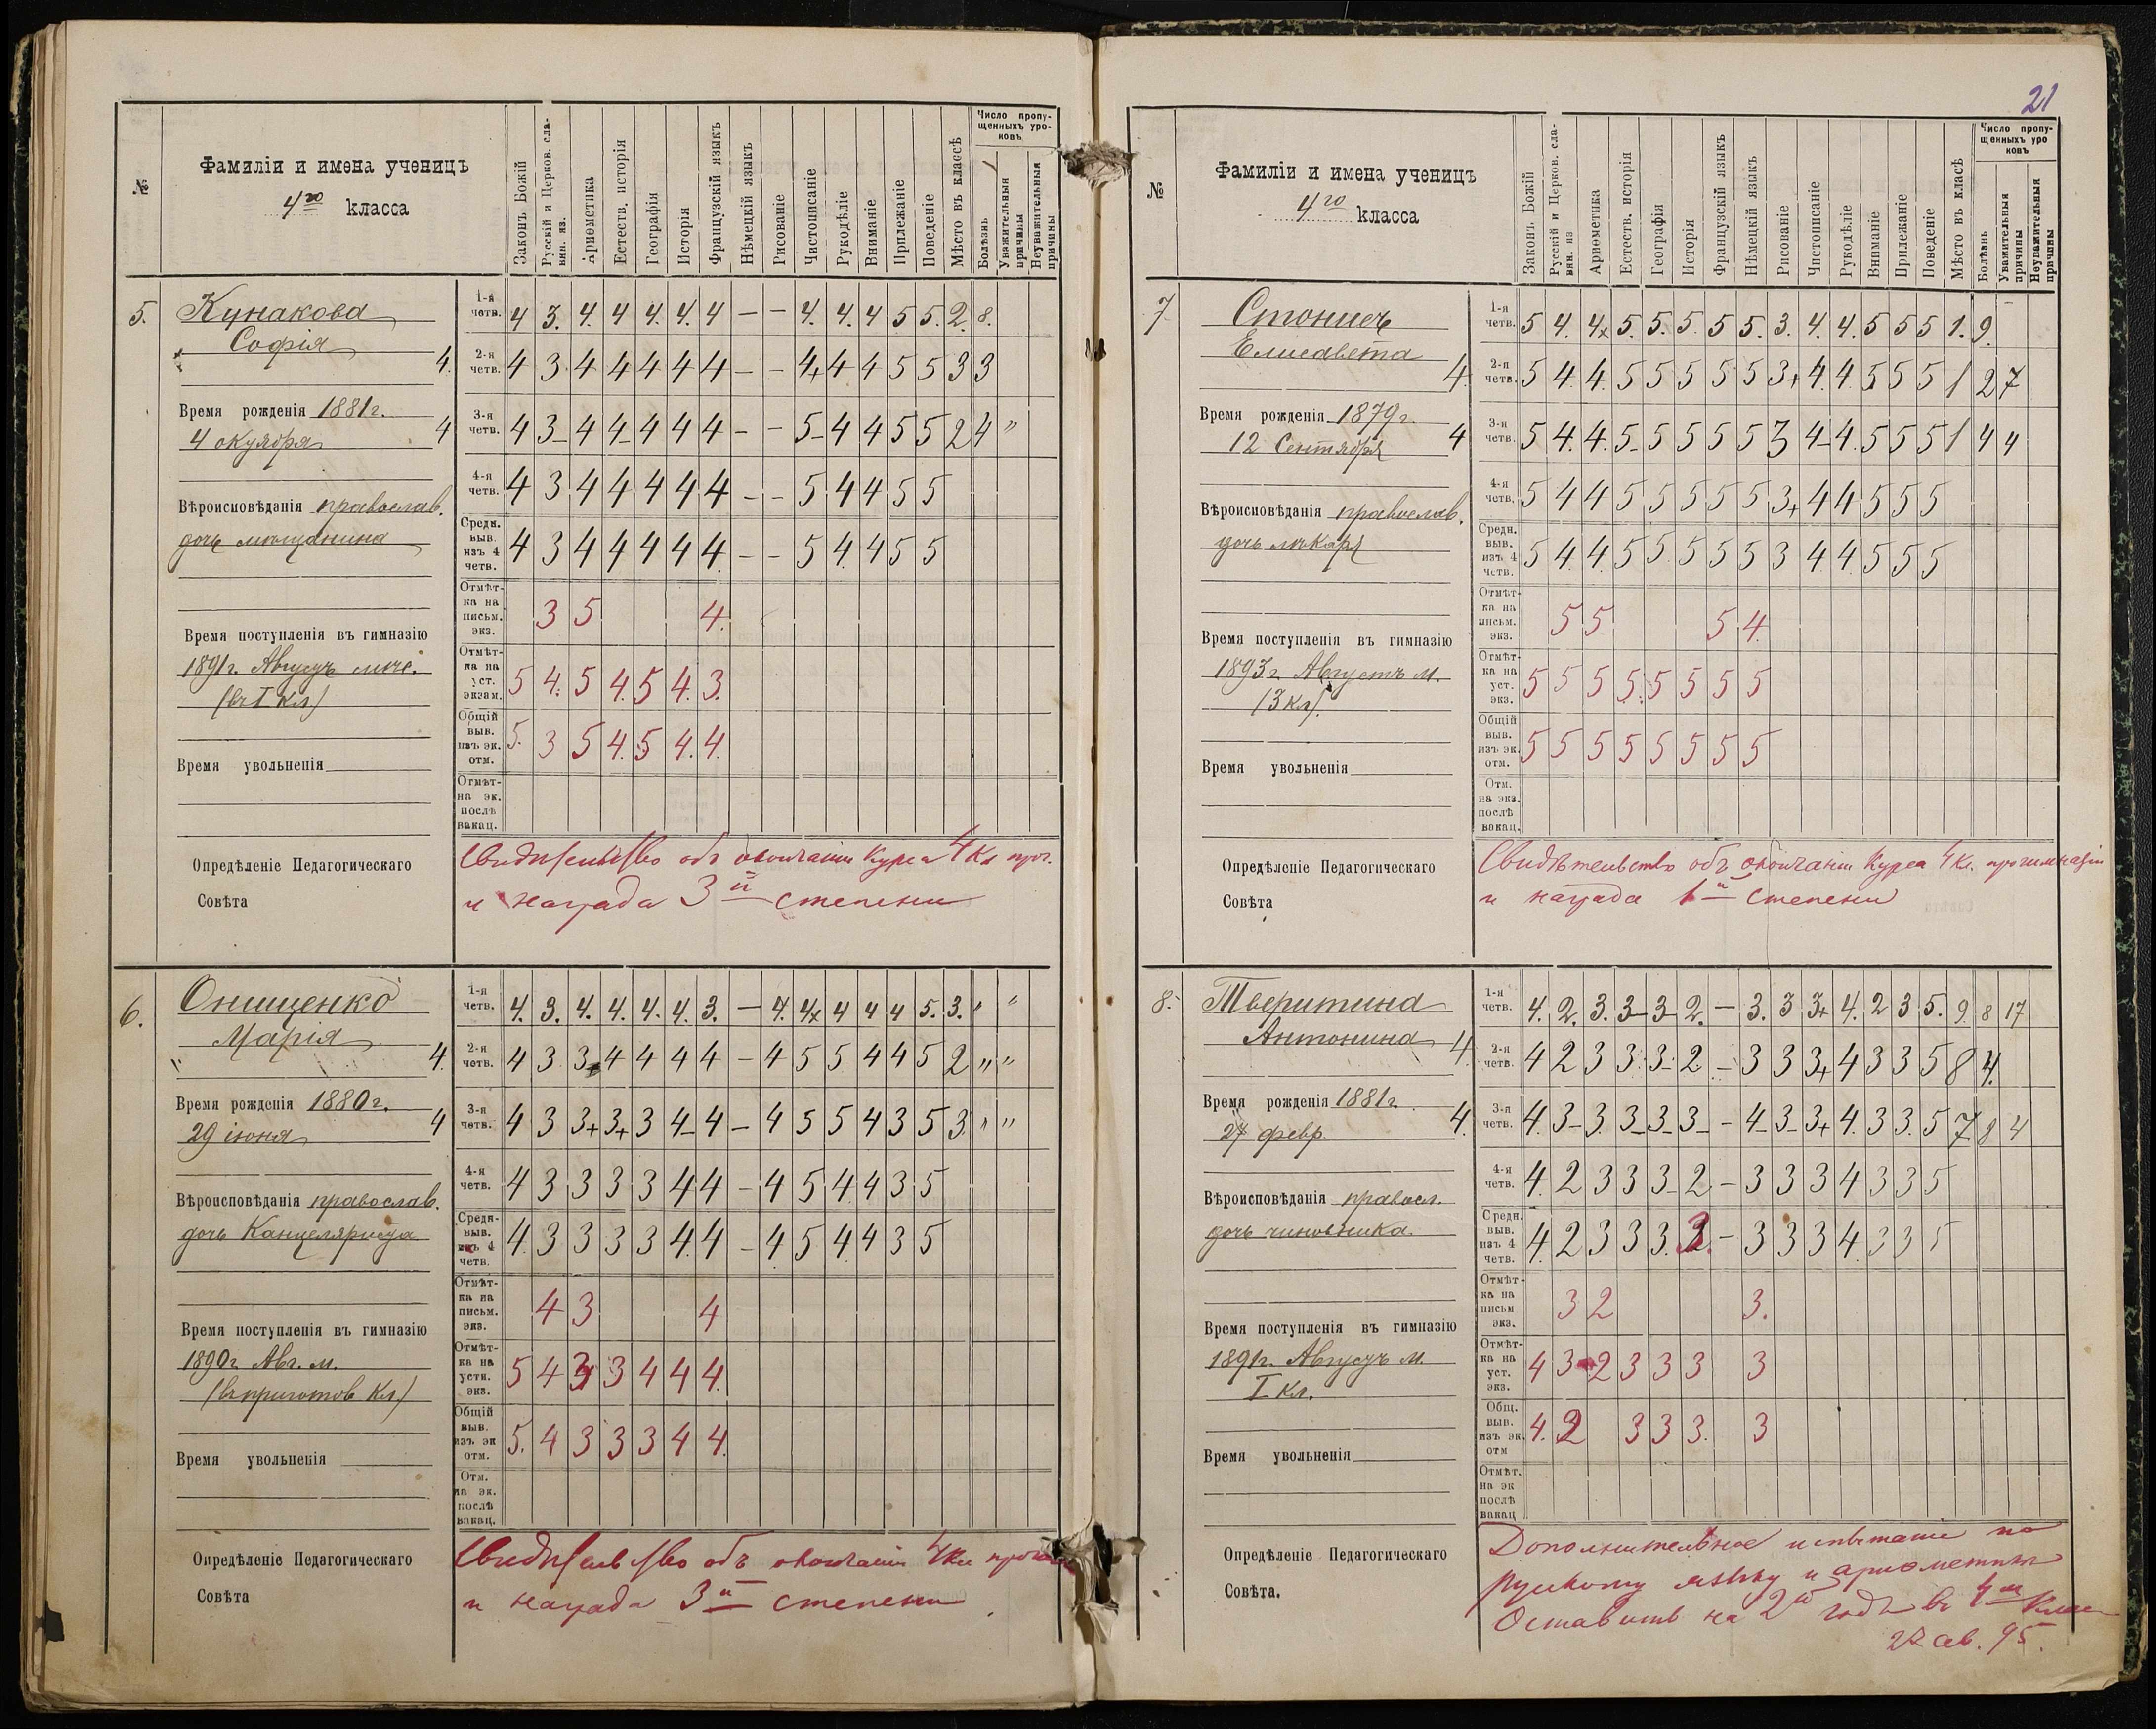 21
№
Фамиліи и имена ученицъ
4го класса
Законъ Божій
Русскій и Церков. сла-
вян. яз.
Ариѳметика
Естеств. исторія
Географія
Исторія
Французскій языкъ
Нѣмецкій языкъ
Рисованіе
Чистописаніе
Рукодѣліе
Вниманіе
Прилежаніе
Поведеніе
Мѣсто въ классѣ
Число пропу-
щенныхъ уро-
ковъ
Болѣзнь
Уважительныя
причины
Неуважительныя
причины
5.
Кунакова
Софія
4.
Время рожденія 1881г.
4 октября
4
Вѣроисповѣданія православ.
дочь мѣщанина
Время поступленія въ гимназію
1891г. Августъ мѣс.
(въ I кл)
Время увольненія
1-я четв. 4 3. 4. 4 4. 4. 4 – – 4. 4. 4 5 5. 2. 8.
2-я четв. 4 3 4 4 4 4 4 – – 4+ 4 4 5 5 3 3
3-я четв. 4 3– 4 4– 4 4 4 – – 5– 4 4 5 5 2 4 "
4-я четв. 4 3 4 4 4 4 4 – – 5 4 4 5 5
Средн. выв. изъ 4 четв. 4 3 4 4 4 4 4 – – 5 4 4 5 5
Отмѣт- ка на письм. экз. 3 5 4.
Отмѣт- ка на уст. экзам. 5 4. 5 4. 5 4. 3.
Общій выв. изъ эк. отм. 5. 3 5 4. 5 4. 4.
Отмѣт- на эк. послѣ вакац.
Опредѣленіе Педагогическаго
Совѣта
Свидѣтельство объ окончаніи курса 4 кл прог.
и награда 3й степени
6.
Онищенко
Марія
4.
Время рожденія 1880г.
29 іюня
4
Вѣроисповѣданія православ.
дочь Канцеляриста
Время поступленія въ гимназію
1890г. Авг. м.
(въ приготов кл)
Время увольненія
1-я четв. 4. 3. 4. 4. 4. 4. 3. – 4. 4x 4 4 4 5. 3. " "
2-я четв. 4 3 3 4 4 4 4 – 4 5 5 4 4 5 2 " "
3-я четв. 4 3 3+ 3+ 3 4– 4 – 4 5 5 4 3 5 3 " "
4-я четв. 4 3 3 3 3 4 4 – 4 5 4 4 3 5
Средн- выв. изъ 4 четв. 4. 3 3 3 3 4. 4 – 4. 5 4. 4 3 5
Отмѣт- ка на письм. экз. 4 3 4
Отмѣт- ка на устн. экз. 5 4 3 3 4 4 4.
Общій выв. изъ эк отм. 5. 4 3 3 3 4 4.
Отм. на эк. послѣ вакац.
Опредѣленіе Педагогическаго
Совѣта
Свидѣтельство объ окончаніи 4 кл
и награда 3й степени
№
Фамиліи и имена ученицъ
4го класса
Законъ Божій
Русскій и Церков. сла-
вян. яз
Ариѳметика
Естеств. исторія
Географія
Исторія
Французскій языкъ
Нѣмецкій языкъ
Рисованіе
Чистописаніе
Рукодѣліе
Вниманіе
Прилежаніе
Поведеніе
Мѣсто въ класѣ
Число пропу-
щенныхъ уро
ковъ
Болѣзнь
Уважительныя
причины
Неуважительныя
причины
7
Елисавета
4.
Время рожденія 1879г.
12 Сентября
4
Вѣроисповѣданія православ.
дочь лѣкаря
Время поступленія въ гимназію
1893г Августъ м.
(3 кл).
Время увольненія
1-я четв. 5 4. 4x 5. 5. 5. 5 5. 3. 4. 4. 5 5 5 1. 9.
2-я четв. 5 4. 4. 5 5 5 5 5 3+ 4. 4. 5 5 5 1 2 7
3-я четв. 5 4. 4. 5– 5 5 5 5 3 4– 4. 5 5 5 1 4 4
4-я четв. 5 4 4 5 5 5 5 5 3+ 4 4 5 5 5
Средн. выв. изъ 4 четв. 5 4 4 5 5 5 5 5 3 4 4 5 5 5
Отмѣт- ка на письм. экз. 5 5 5 4.
Отмѣт- ка на уст. экз. 5 5 5 5. 5 5 5 5
Общій выв. изъ эк. отм. 5 5 5 5 5 5 5 5
Отм. на экз. послѣ вакац.
Опредѣленіе Педагогическаго
Совѣта
Свидѣтельство объ окончаніи курса 4 кл. прогимназіи
и награда 1й степени
8.
Тверитина
Антонина
4.
Время рожденія 1881г.
27 февр.
4.
Вѣроисповѣданія правосл.
дочь чиновника.
Время поступленія въ гимназію
1891г. Августъ м.
I кл.
Время увольненія
1-я четв. 4. 2. 3. 3– 3– 2. – 3. 3 3+ 4. 2 3 5. 9. 8 17
2-я четв. 4 2 3 3 3– 2 – 3 3 3+ 4 3 3 5 8 4.
3-я четв. 4. 3– 3 3– 3– 3– – 4– 3– 3+ 4. 3 3. 5 7 8 4
4-я четв. 4. 2 3 3 3– 2 – 3 3 3 4 3 3 5
Средн. выв. изъ 4 четв. 4. 2 3 3 3. – 3 3 3 4. 3 3 5
Отмѣт- ка на письм экз. 3 2 3.
Отмѣт- ка на уст. экз. 4 3 2 3 3 3 3
Общ. выв. изъ эк. отм 4. 2 3 3 3. 3
Отмѣт. на эк послѣ вакац
Опредѣленіе Педагогическаго
Совѣта.
Дополнительное испытаніе по
русскому языку и ариѳметикѣ
Оставить на 2й годъ въ 4м классѣ
27 ав. 95.